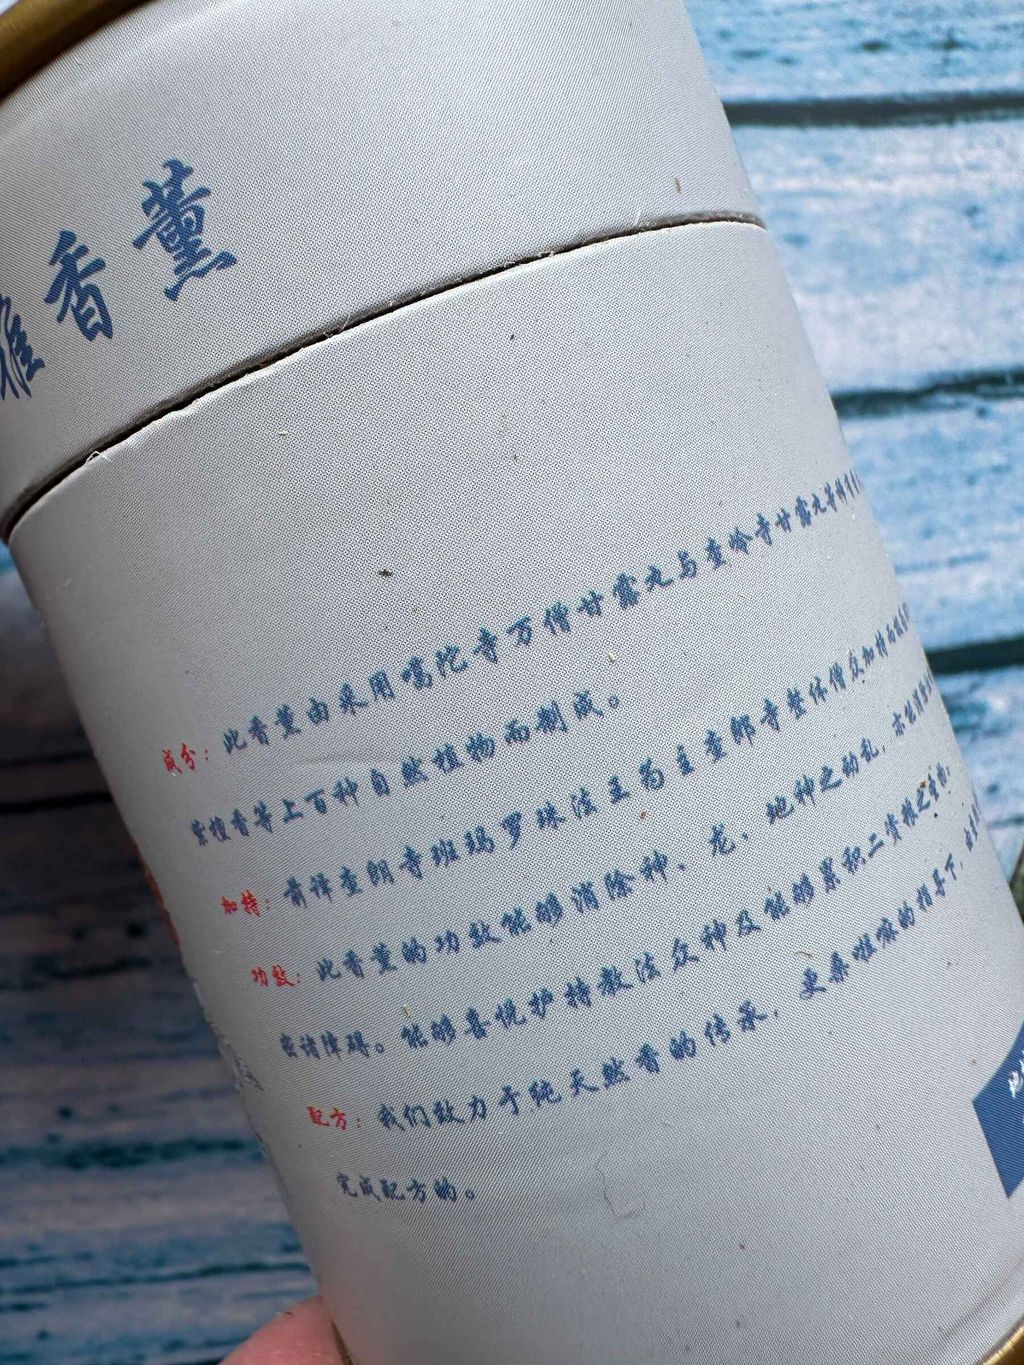 雅香薰
成分：此香薰由采用噶陀寺万僧甘露丸与查岭寺甘露丸等
紫檀香等上百种自然植物而制成。
加持：前译查朗寺班玛罗珠法王为主查郎寺整体僧众加持而
功效：此香薰的功效能够消除神、龙、地神之动乱，亦能消除
密诸障碍。能够喜悦护持教法众神及能够累积二资粮之
配方：我们致力于纯天然香的传承，更桑喇嘛的指导下，
完成配方的。